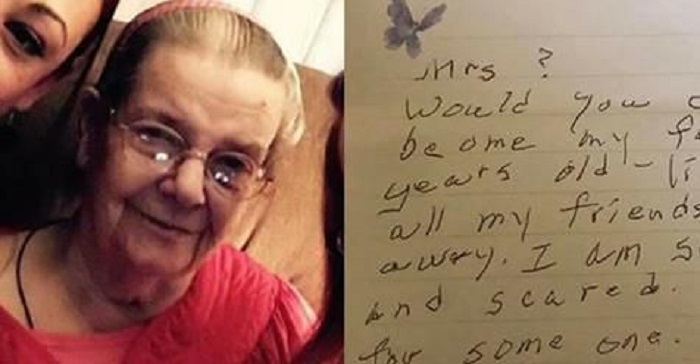 Mrs ?
Would you
become my
years old - li
all my friends
away. I am s
And scared.
for some one.